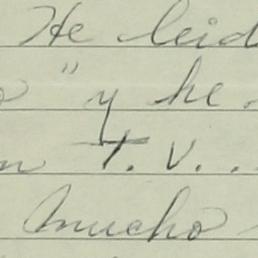 He leid
" y he
T.V...
mucho